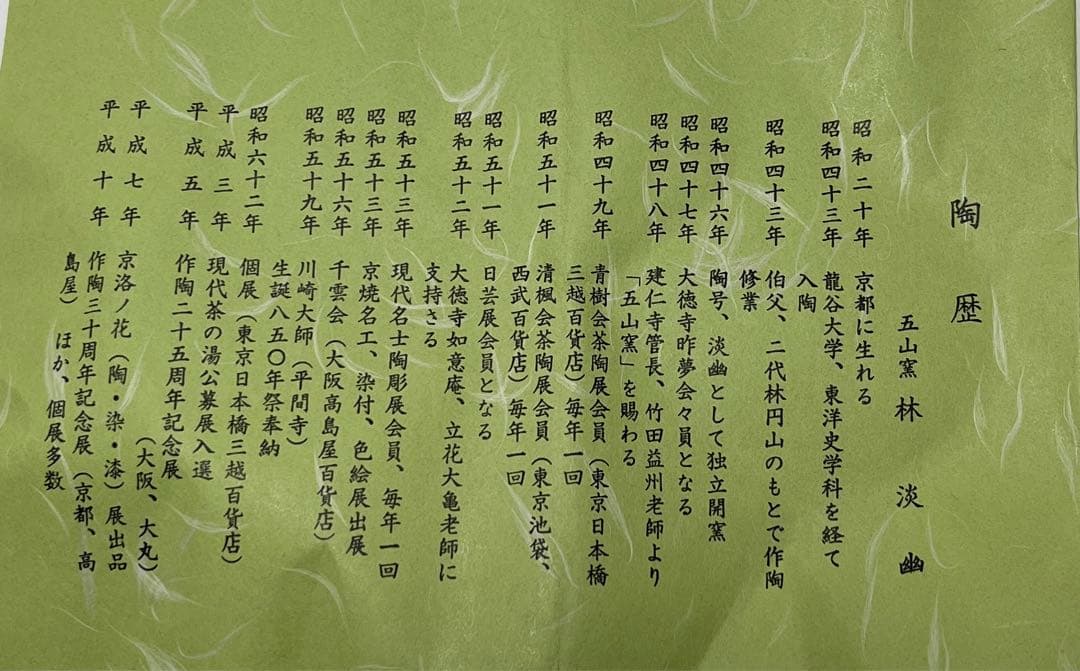 陶歴
五山窯 林 淡幽
昭和二十年 京都に生れる
昭和四十三年 龍谷大学、東洋史学科を経て
入陶
昭和四十三年 伯父、二代林円山のもとで作陶
修業
昭和四十六年 陶号、淡幽として独立開窯
昭和四十七年 大徳寺昨夢会々員となる
昭和四十八年 建仁寺管長、竹田益州老師より
「五山窯」を賜わる
昭和四十九年 青樹会茶陶展会員（東京日本橋
三越百貨店）毎年一回
昭和五十一年 清楓会茶陶展会員（東京池袋、
西武百貨店）毎年一回
昭和五十一年 日芸展会員となる
昭和五十二年 大徳寺如意庵、立花大亀老師に
支持さる
昭和五十三年 現代名士陶彫展会員、毎年一回
昭和五十三年 京焼名工、染付、色絵展出展
昭和五十六年 千雲会（大阪高島屋百貨店）
昭和五十九年 川崎大師（平間寺）
生誕八五〇年祭奉納
昭和六十二年 個展（東京日本橋三越百貨店）
平成三年 現代茶の湯公募展入選
平成五年 作陶二十五周年記念展
（大阪、大丸）
平成七年 京洛ノ花（陶・染・漆）展出品
平成十年 作陶三十周年記念展（京都、高
島屋） ほか、個展多数